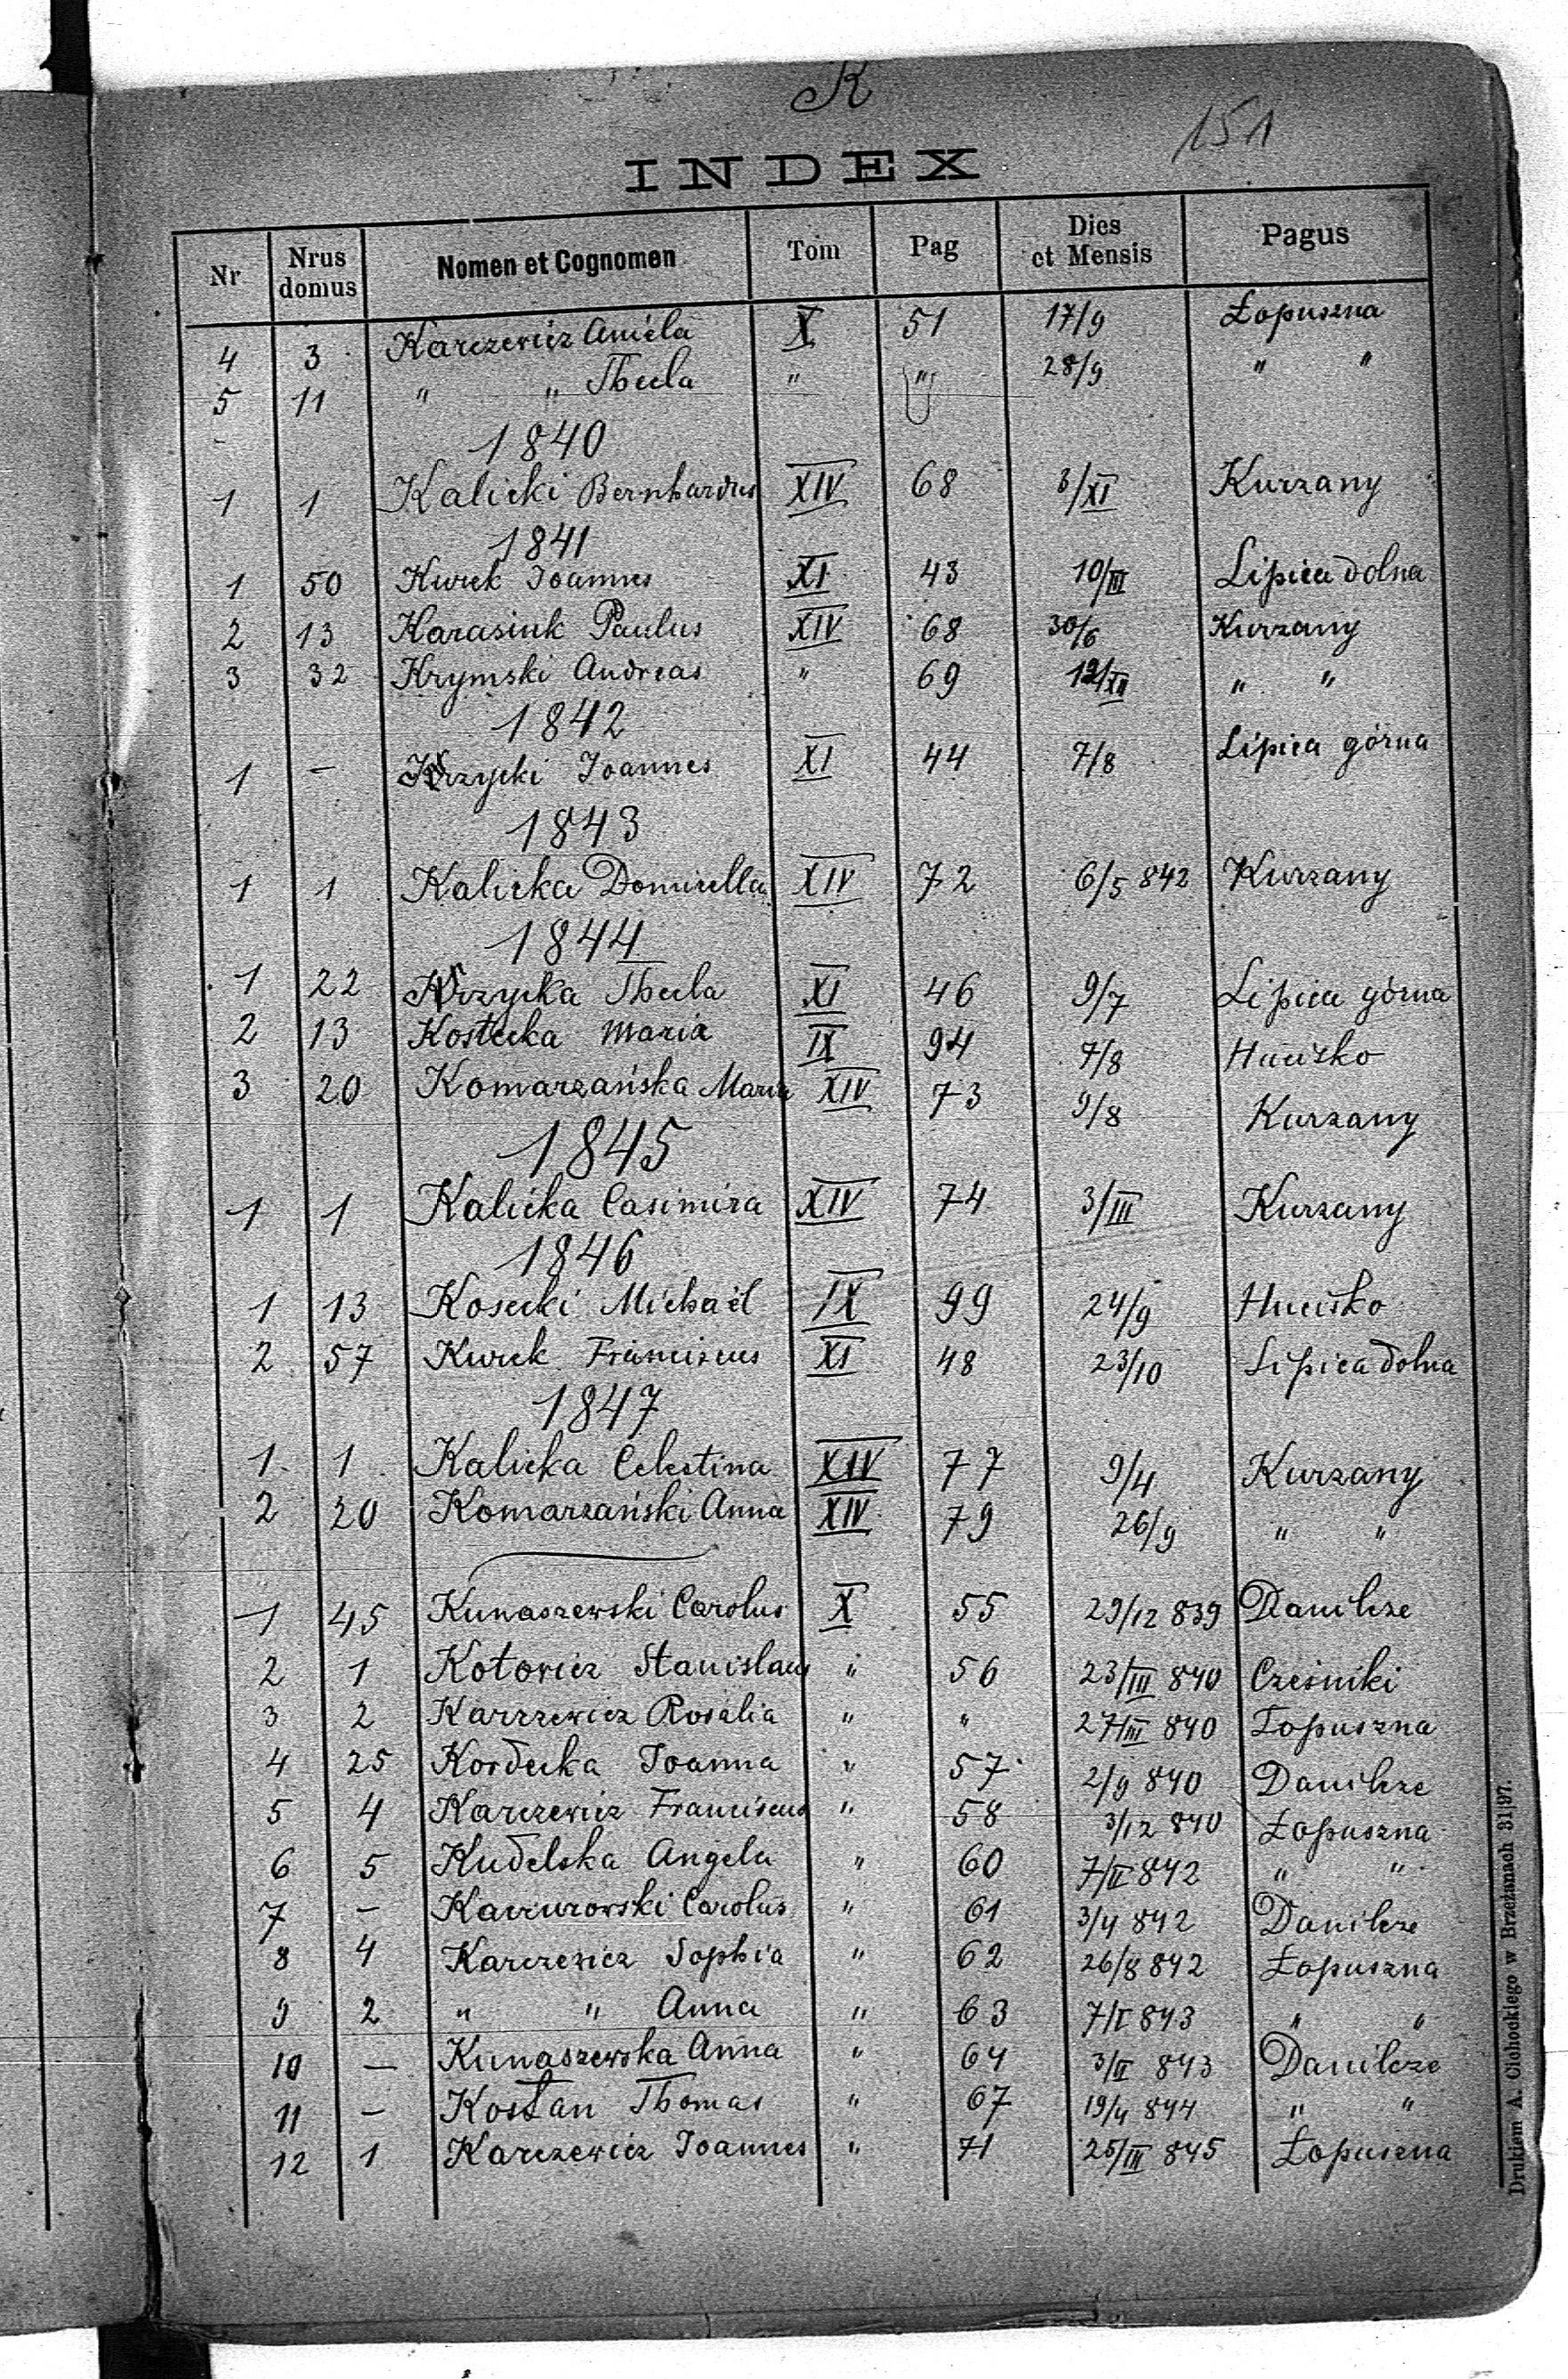 K
151
INDEX
Nr Nrus domus Nomen et Cognomen Tom Pag Dies et Mensis Pagus
4 3 Karczewicz Aniela X 51 17/9 Łopuszna
5 11 " " Thecla " " 28/9 " "
1840
1 1 Kalicki Bernhardus XIV 68 3/XI Kurzany
1841
1 50 Kurek Joannes XI 43 10/III Lipica dolna
2 13 Karasiuk Paulus XIV 68 30/6 Kurzany
3 32 Krymski Andreas " 69 12/XII " "
1842
1 – Krzycki Joannes XI 44 7/8 Lipica górna
1843
1 1 Kalicka Domicella XIV 72 6/5 842 Kurzany
1844
1 22 Krzycka Thecla XI 46 9/7 Lipica górna
2 13 Kostecka Maria IX 94 7/8 Hucisko
3 20 Komarzańska Maria XIV 73 9/8 Kurzany
1845
1 1 Kalicka Casimira XIV 74 3/III Kurzany
1846
1 13 Kosecki Michaël IX 99 24/9 Hucisko
2 57 Kurek Franciscus XI 48 23/10 Lipica dolna
1847
1 1 Kalicka Celestina XIV 77 9/4 Kurzany
2 20 Komarzański Anna XIV 79 26/9 " "
1 45 Kunaszewski Carolus X 55 29/12 839 Danilcze
2 1 Kotowicz Stanislaus " 56 23/III 840 Cześniki
3 2 Karczewicz Rosalia " " 27/III 840 Łopuszna
4 25 Kordecka Joanna " 57 2/9 840 Danilcze
5 4 Karczewicz Franciscus " 58 3/12 840 Łopuszna
6 5 Kudelska Angela " 60 7/II 842 " "
7 – Carolus " 61 3/4 842 Danilcze
8 4 Karczewicz Sophia " 62 26/8 842 Łopuszna
9 2 " " Anna " 63 7/I 843 " "
10 – Kunaszewska Anna " 64 3/II 843 Danilcze
11 – Kostan Thomas " 67 19/4 844 " "
12 1 Karczewicz Joannes " 71 25/III 845 Łopuszna
Drukiem A. Cichockiego w Brzeżanach 31|97.